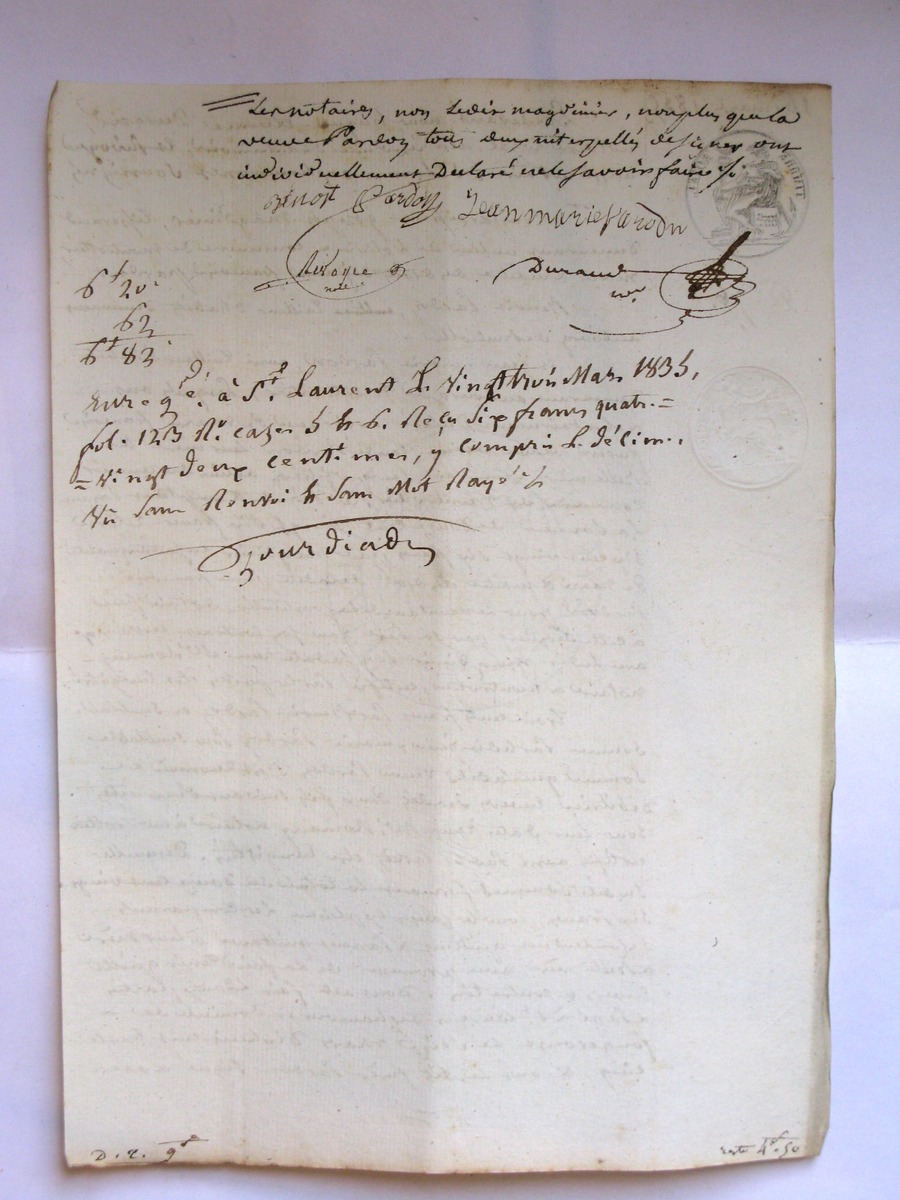 Les notaires, non ledit magdinier, non plus que la
veuve Pardon tous deux interpellés de signer ont
individuellement Declaré ne le savoir faire ./.
Benoit Pardon Jean marie Pardon
note
Durand
nre
6f 20c
62
6f 82
enregé. à St. Laurent le vingt trois Mars 1835,
fol. 123 Ro. cases 5 et 6. Reçu Six francs quatre=
=vingt deux centimes, y compris le décime.
Vu Sans Renvoi et Sans Mot Rayé ./.
D. r. 9f
reste 4f. 50